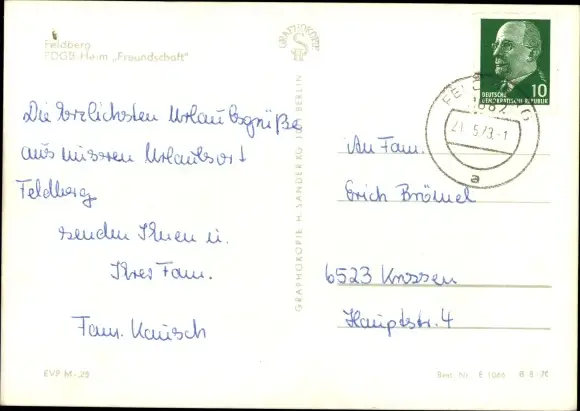 Feldberg
FDGB-Heim „Freundschaft"
Die herzlichsten Urlaubsgrüße
aus unserem Urlaubsort
Feldberg
senden Ihnen u.
Ihrer Fam.
Fam. Kausch
EVP M -,20
GRAPHOKOPIE
GRAPHOKOPIE H. SANDER KG BERLIN
DEUTSCHE
DEMOKRATISCHE REPUBLIK
10
FELDBERG
21.5.73.-1
a
An Fam.
Erich Brömel
6523 Krossen
Hauptstr. 4
Best. Nr. E 1066 B 8/70